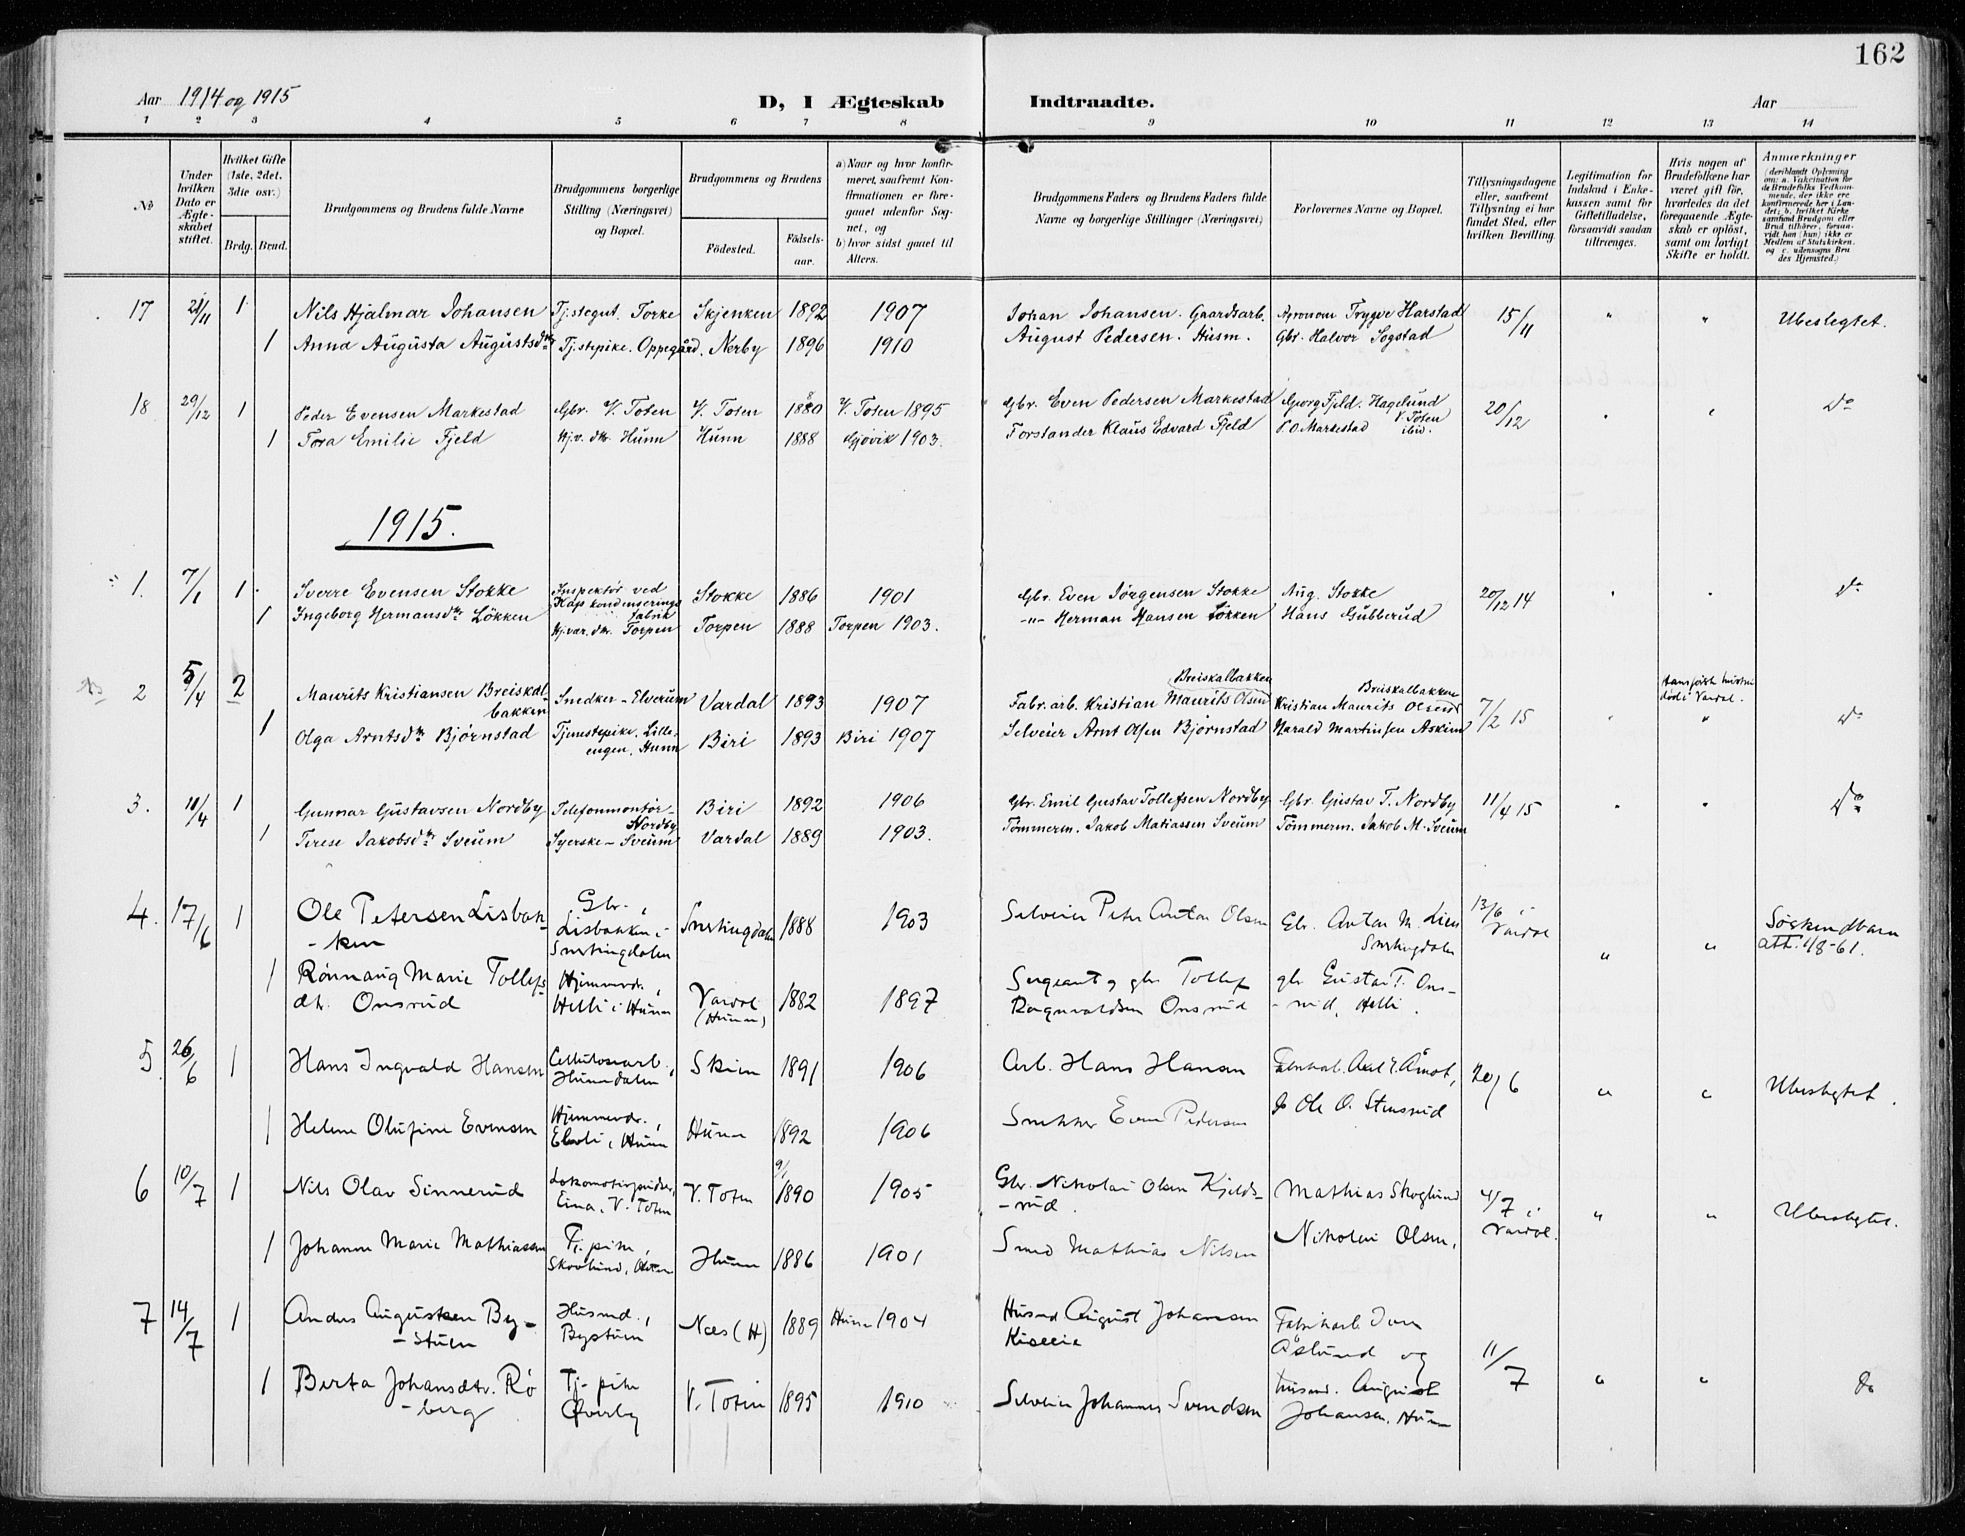 162
Aar 1914 og 1915 D, I Ægteskab Indtraadte. Aar
1 2 3 4 5 6 7 8 9 10 11 12 13 14
No
Under hvilken Dato er Ægteskabet stiftet.
Hvilket Gifte (1ste, 2det, 3die osv.)
Brdg. Brud.
Brudgommens og Brudens fulde Navne
Brudgommens borgerlige Stilling (Næringsvei) og Bopæl.
Brudgommens og Brudens
Fødested. Fødselsaar.
a) Naar og hvor konfirmeret, saafremt Konfirmationen er foregaaet udenfor Sognet, og b) hvor sidst gaaet til Alters.
Brudgommens Faders og Brudens Faders fulde Navne og borgerlige Stillinger (Næringsvei)
Forlovernes Navne og Bopæl.
Tillysningsdagene eller, saafremt Tillysning ei har fundet Sted, efter hvilken Bevilling.
Legitimation for Indskud i Enkekassen samt for Giftetilladelse, forsaavidt saadan tiltrænges.
Hvis nogen af Brudefolkene har været gift før, hvorledes da det foregaaende Ægteskab er opløst, samt om lovligt Skifte er holdt.
Anmærkninger (deriblandt Oplysning om: a. Vakcination for de Brudefolks Vedkommende, der ikke ere konfirmerede her i Landet; b. hvilket Kirkesamfund Brudgom eller Brud tilhører, forsaavidt han (hun) ikke er Medlem af Statskirken, og c. udensogns Brudes Hjemsted.)
17 21/11 1 Nils Hjalmar Johansen Tj.stegut. Torke Skjenken 1892 1907 Johan Johansen. Gaardsarb. Agronom Trygve Harstad 15/11 " " Ubeslegtet.
1 Anna Augusta Augustsdtr Tj.stepike. Oppegård. Nerby 1896 1910 August Pedersen. Husm. Gbr. Halvor Sogstad
18 29/12 1 Peder Evensen Markestad Gbr. V. Toten V. Toten 1880 V. Toten 1895 Gbr. Even Pedersen Markestad Georg Fjeld. Hagelund V. Toten 20/12 " " Do
1 Tora Emilie Fjeld Hj.v. dtr. Hunn Hunn 1888 Gjøvik 1903. Forstander Klaus Edvard Fjeld P.O. Markestad ibid.
1915.
1. 7/1 1. Sverre Evensen Stokke Inspektør ved Kaps kondenserings fabrik Stokke 1886 1901 Gbr. Even Jørgensen Stokke Aug. Stokke 20/12 14 " " Do
1 Ingeborg Hermansdtr Løkken Hj.vær. dtr. Torpen Torpen 1888 Torpen 1903. -"- Herman Hansen Løkken Hans Gubberud
2 5/4 2 Maurits Kristiansen Breiskalbakken Snedker - Elverum Vardal 1893 1907 Fabr. arb. Kristian Maurits Olsen Breiskalbakken Kristian Maurits Olsen Breiskalbakken 7/2 15 " Hans første hustru død i Vardal. " Do
1 Olga Arntsdtr Bjørnstad Tjenestepike. Lilleengen, Hunn Biri 1893 Biri 1907 Selveier Arnt Olsen Bjørnstad Harald Martinsen Askim
3. 11/4 1 Gunnar Gustavsen Nordby Telefonmontør - Nordby Biri 1892 1906 Gbr. Emil Gustav Tollefsen Nordby Gbr. Gustav T. Nordby 11/4 15 " " Do
1 Terese Jakobsdtr Sveum Syerske - Sveum Vardal 1889 1903. Tømmerm. Jakob Matiassen Sveum Tømmerm. Jakob M. Sveum
4. 17/6 1 Ole Petersen Lisbakken Gbr., Lisbakken i Snertingdalen Snertingdalen 1888 1903 Selveier Peter Anton Olsen Gbr. Anton M. Lien Snertingdalen 13/6 i Vardal " " Søskendbarn att. 4/8-61.
1 Rønnaug Marie Tollefsdtr. Onsrud Hjemmevdr., Helli i Hunn Vardal (Hunn) 1882 1897 Sergeant og gbr. Tollef Ragnvaldsen Onsrud gbr Gustav T. Onsrud, Helli.
5 26/6 1 Hans Ingvald Hansen Cellulosearb., Hunndalen Skien 1891 1906 Arb. Hans Hansen Fabrikarb. Axel E. Åmot, 20/6 " " Ubeslegtet.
1 Helene Olufine Evensen Hjemmevdr., , Hunn Hunn 1892 1906 Snekker Even Pedersen do Ole O. Stensrud
6 10/7 1 Nils Olav Sinnerud Lokomotivpudser, Eina, V. Toten V. Toten 9/1 1890 1905 Gbr. Nikolai Olsen Kjeldsrud. Mathias Skoglund 4/7 i Vardal. " " Ubeslegtet.
1 Johanne Marie Mathiassen Tj. pike, Hunn 1886 1901 Smed Mathias Nilsen Nikolai Olsen,
7 14/7 1 Anders Augustsen Bystuen Husmd., Bystuen Næs (H) 1889 Hunn 1904 Husmd August Johansen Fabrikarb. Åslund og 11/7 " " do
1 Berta Johansdtr. Røberg Tj. pike Øverby V. Toten 1895 1910 Selveier Johannes Svendsen husmd. August Johansen. Hunn